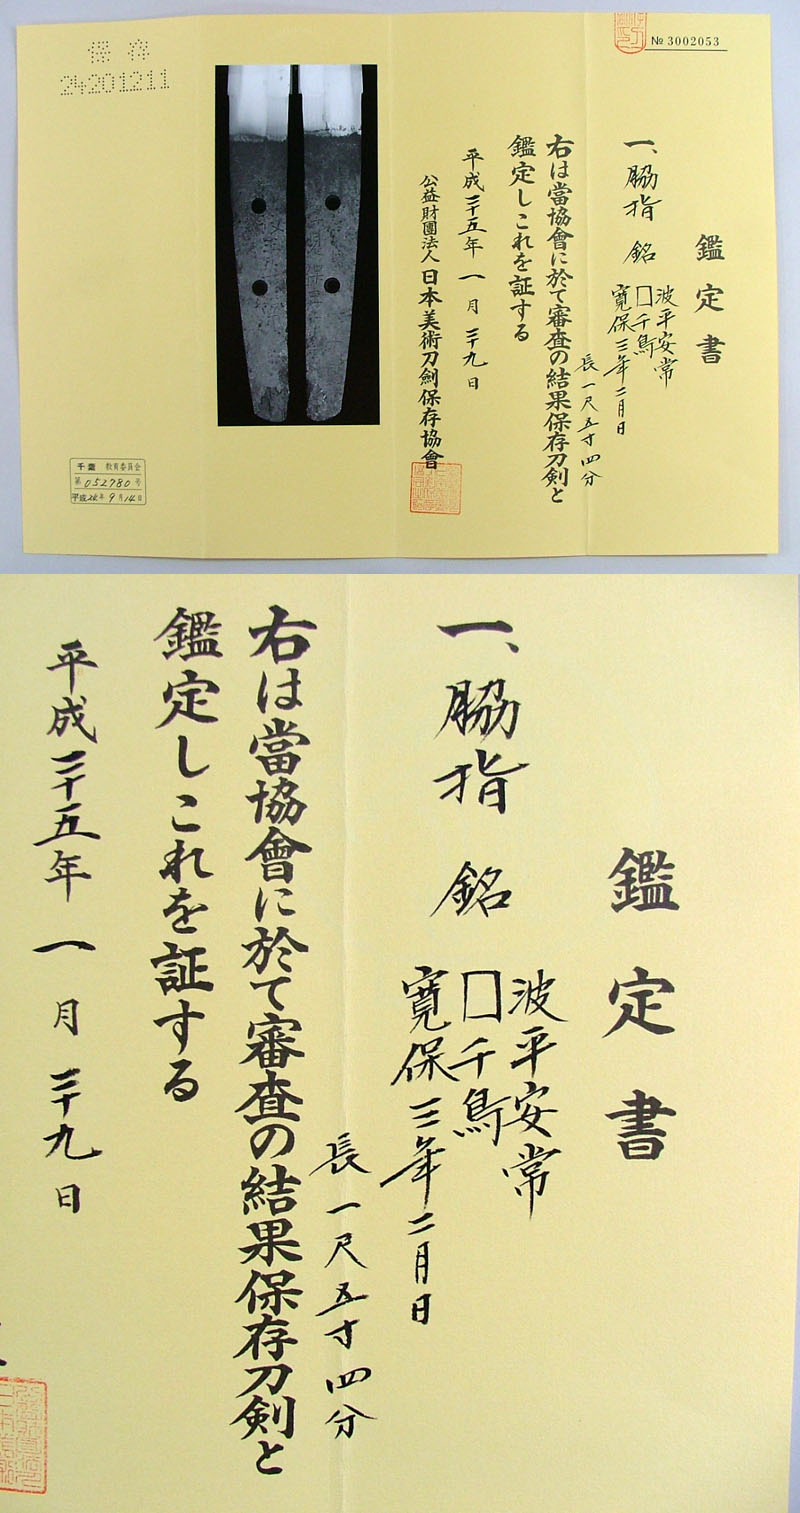 保存
24201211
№ 3002053
鑑定書
一、脇指 銘
波平安常
□千鳥
寛保三年二月日
長一尺五寸四分
右は當協會に於て審査の結果保存刀剣と
鑑定しこれを証する
平成二十五年一月二十九日
公益財團法人日本美術刀剣保存協會
千葉 教育委員会
第052780号
平成24年9月14日
鑑定書
一、脇指 銘
波平安常
□千鳥
寛保三年二月日
長一尺五寸四分
右は當協會に於て審査の結果保存刀剣と
鑑定しこれを証する
平成二十五年一月二十九日